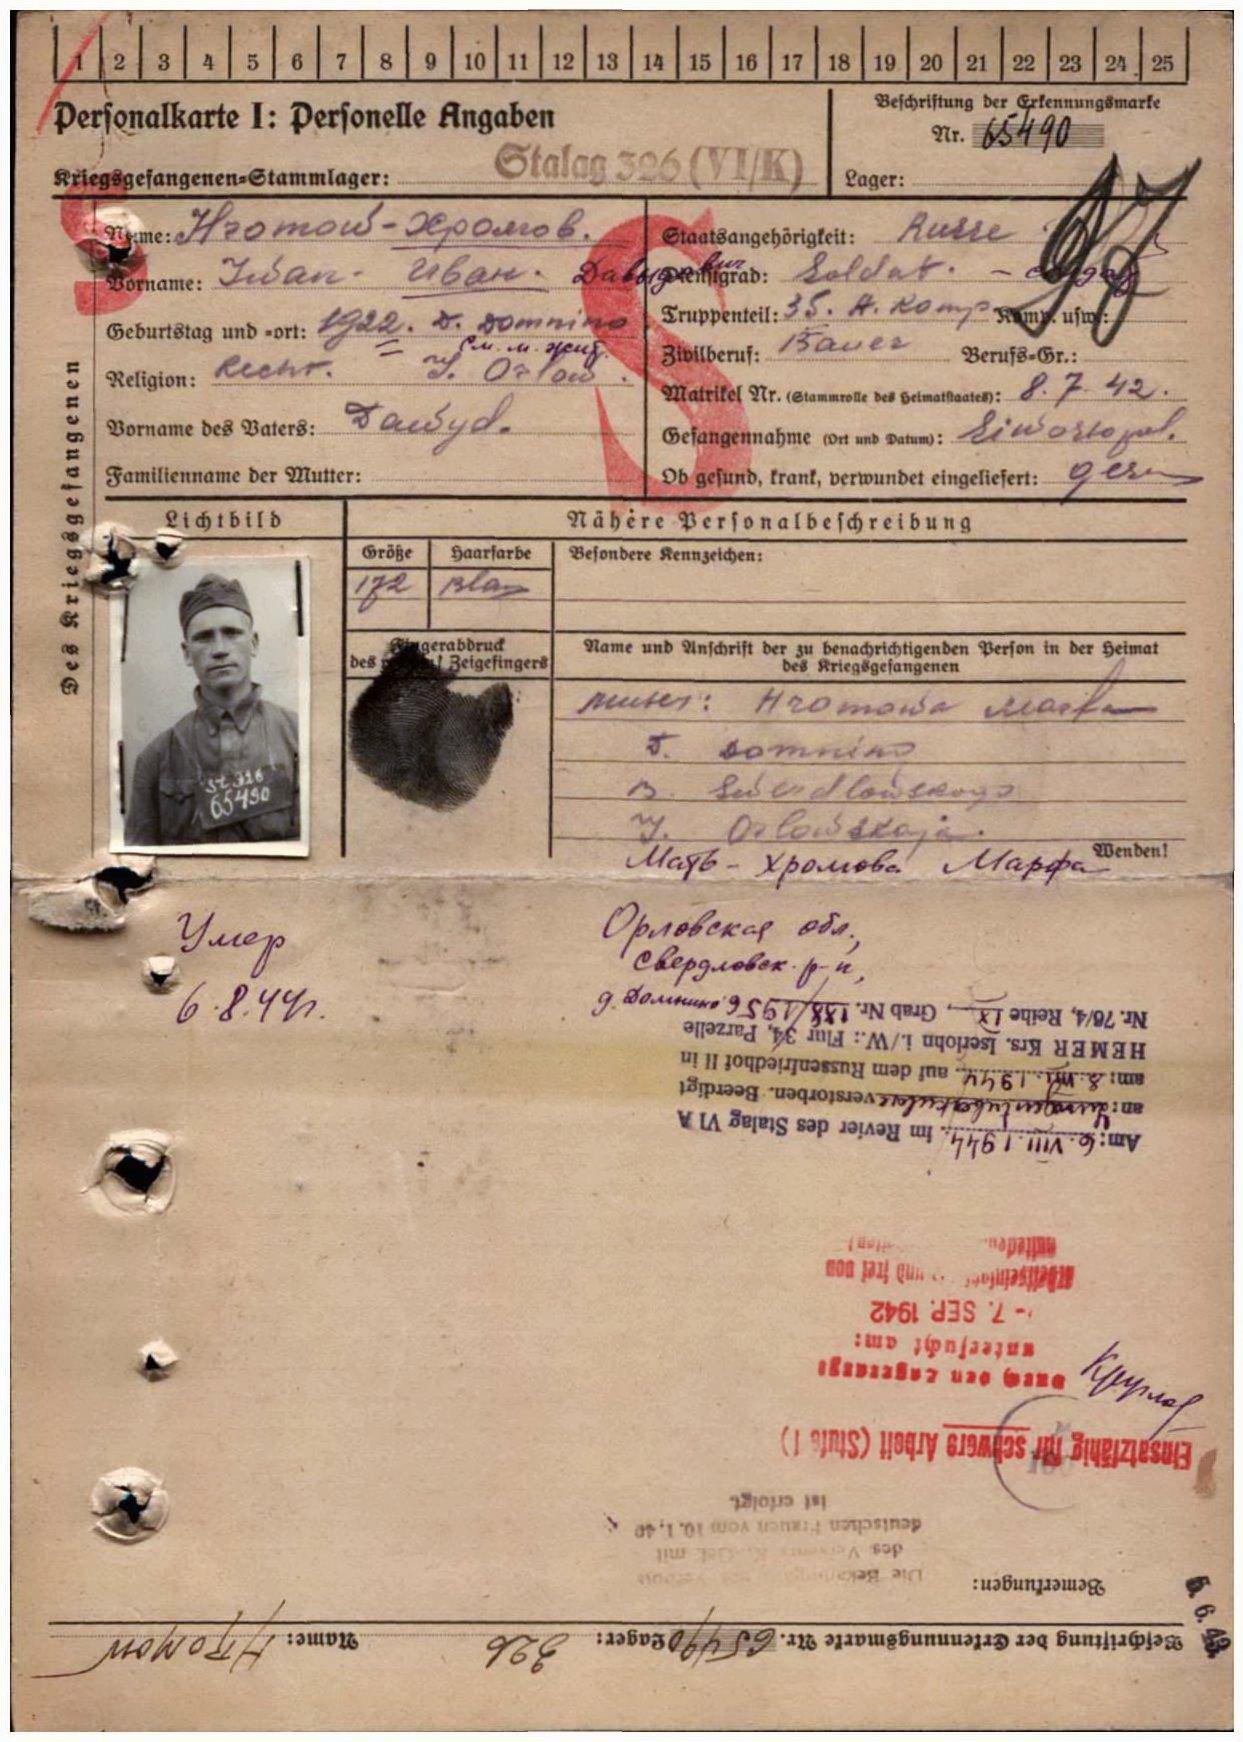 1 2 3 4 5 6 7 8 9 10 11 12 13 14 15 16 17 18 19 20 21 22 23 24 25
Personalkarte I: Personelle Angaben
Beschriftung der Erkennungsmarke
Nr. 65490
Kriegsgefangenen-Stammlager: Stalag 326 (VI/K)
Lager:
S
S
Des Kriegsgefangenen
Name: Hromow - Хромов.
Vorname: Iwan - Иван. Давыдович
Geburtstag und -ort: 1922. D. Domnino
см. м. жит.
Religion: J. Orlow.
Vorname des Vaters: Dawyd.
Familienname der Mutter:
Staatsangehörigkeit: Russe
Dienstgrad: Soldat. - солдат
Truppenteil: 35. A. Komp Komp. usw.:
Zivilberuf: Bauer Berufs-Gr.:
Matrikel Nr. (Stammrolle des Heimatstaates): 8.7.42.
Gefangennahme (Ort und Datum):
Ob gesund, krank, verwundet eingeliefert: ges
Lichtbild
Nähere Personalbeschreibung
Größe Haarfarbe Besondere Kennzeichen:
172
Fingerabdruck
des Zeigefingers
Name und Anschrift der zu benachrichtigenden Person in der Heimat
des Kriegsgefangenen
Hromowa Marfa
D. Domnino
Swerdlowskogo
J. Orlowskaja.
Wenden!
St 326
65490
Мать - Хромова Марфа
Умер
6.8.44г.
Орловская обл.,
Свердловск. р-н,
д. Домнино
Am: 6. VIII. 1944. im Revier des Stalag VI A
an: Lungentuberkulose verstorben. Beerdigt
am: 8. VIII. 1944 auf dem Russenfriedhof II in
HEMER Krs. Iserlohn i./W.: Flur 34, Parzelle
Nr. 76/4, Reihe IX, Grab Nr. 188/1956
- 7. SEP. 1942
untersucht am:
Durch den Lagerarzt
Einsatzfähig für schwere Arbeit (Stufe 1)
deutschen Frauen vom 10.1.40
ist erfolgt.
Bemerkungen:
Beschriftung der Erkennungsmarke Nr. 65490 Lager: 326 Name: Hromow